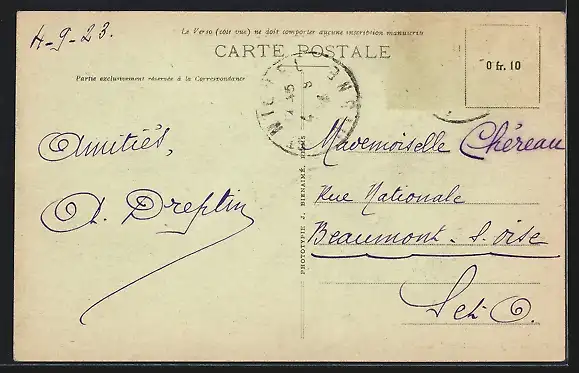 4-9-23.
Le Verso (côté vue) ne doit comporter aucune inscription manuscrite
CARTE POSTALE
Partie exclusivement réservée à la Correspondance
0 fr. 10
Amitiés,
A. Dreptin
PHOTOTYPIE J. BIENAIMÉ, REIMS
Mademoiselle Chéreau
Rue Nationale
Beaumont-s-oise
S et O.